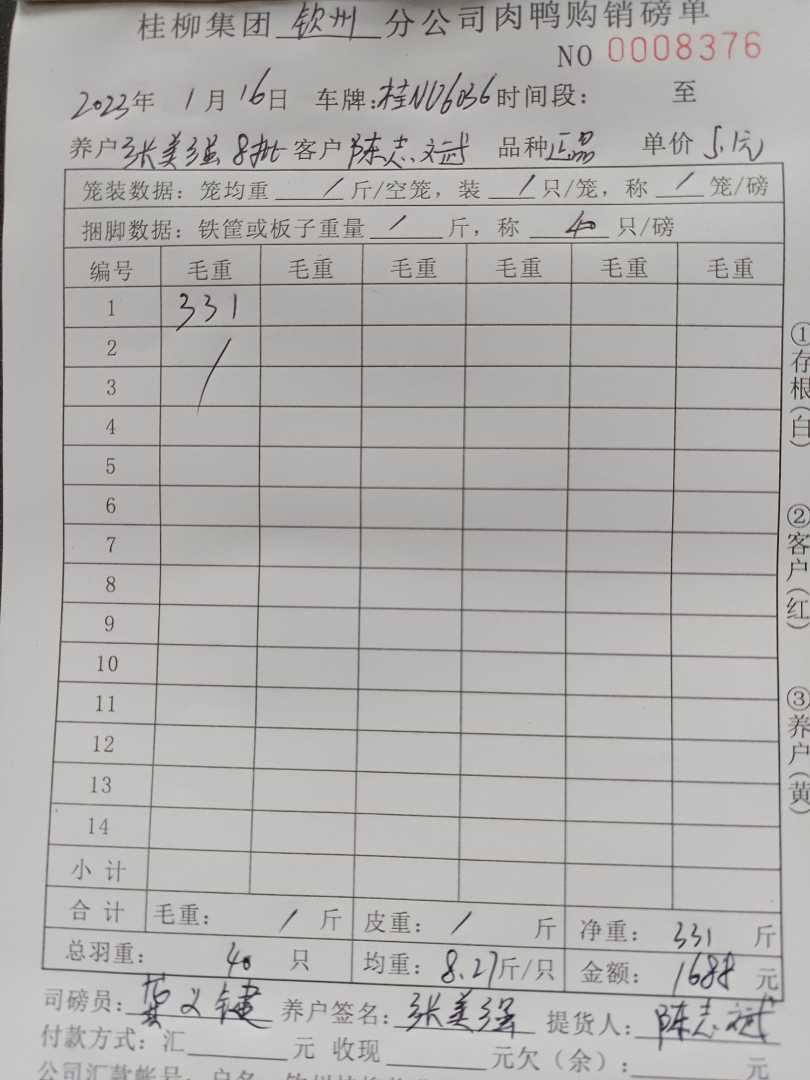 桂柳集团 钦州 分公司肉鸭购销磅单
NO 0008376
2023年 1月16日 车牌:桂N06036 时间段: 至
养户 张美强 8批 客户 陈志斌 品种 正品 单价 5.1元
笼装数据: 笼均重 / 斤/空笼, 装 / 只/笼, 称 / 笼/磅
捆脚数据: 铁筐或板子重量 / 斤, 称 40 只/磅
编号 毛重 毛重 毛重 毛重 毛重 毛重
1 331
2 /
3
4
5
6
7
8
9
10
11
12
13
14
小计
合计 毛重: / 斤 皮重: / 斤 净重: 331 斤
总羽重: 40 只 均重: 8.27斤/只 金额: 1688 元
司磅员: 龚义键 养户签名: 张美强 提货人: 陈志斌
付款方式: 汇 元 收现 元欠(余): 元
公司汇款帐号: 户名: 钦州桂柳
①存根(白) ②客户(红) ③养户(黄)